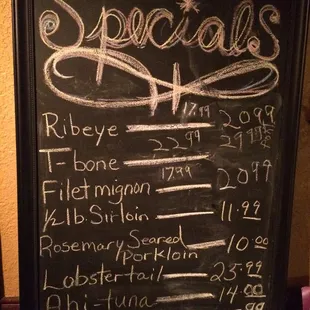 Specials
17.99
Ribeye 20.99
22.99 29.99
T-bone
17.99
Filet mignon 20.99
1/2 lb. Sirloin 11.99
Rosemary Seared 10.00
porkloin
Lobster tail 25.99
Ahi-tuna 14.00
.99